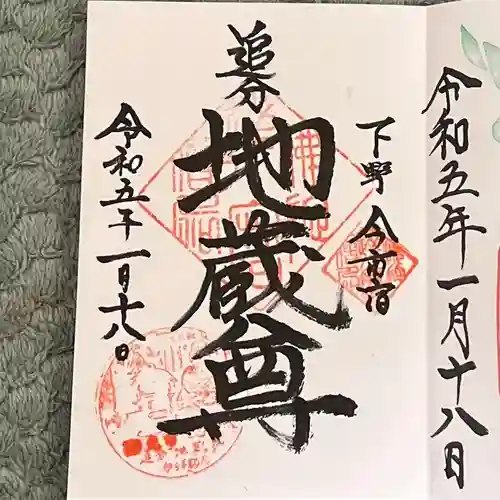 令和五年一月十八日
下野 今市宿
追分
地蔵尊
令和五年一月十八日